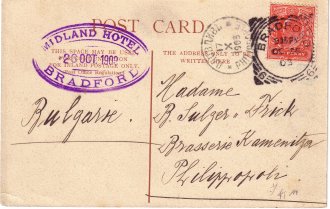 POST CARD
MIDLAND HOTEL
26 OCT 1903
BRADFORD
THIS SPACE MAY BE USED
FOR INLAND POSTAGE ONLY.
THE ADDRESS ONLY
WRITTEN
BRADFORD
03
Bulgarie.
Madame
B. Sulzer-Frick
Brasserie Kamenitza
Philippopoli